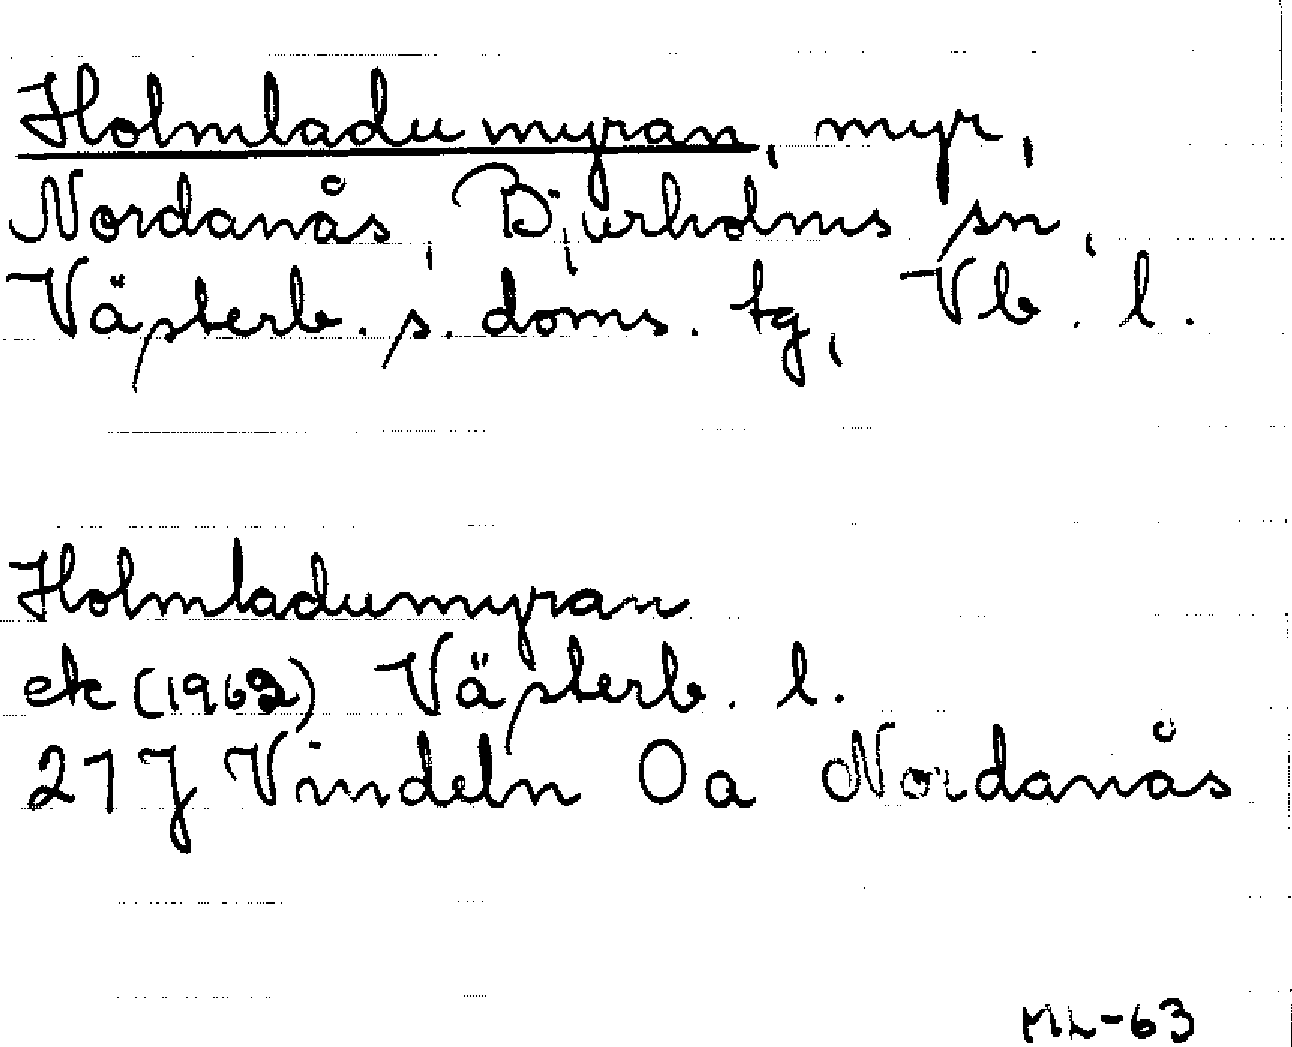 Holmladumyran, myr,
Nordanås, Bjurholms sn,
Västerb. s. doms. tg, Vb. l.
Holmladumyran
ek (1962) Västerb. l.
21 J Vindeln 0a Nordanås
ML-63